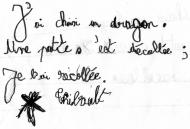 J'ai choisi un dragon.
Une patte s'est décollée ;
Je l'ai recollée.
Thibault